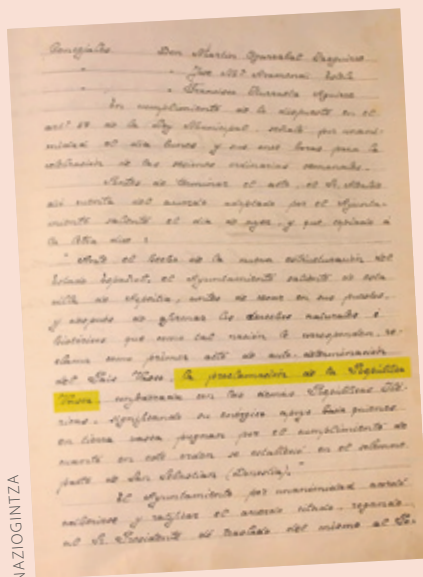 Concejales Don Martin Oyarzabal
" " José Mª Aramendi
" " Francisco Aguirre
En cumplimiento de lo dispuesto en el
artº 57 de la Ley Municipal, señala por unani-
midad el dia lunes y sus once horas para la
celebracion de las sesiones ordinarias semanales.
Antes de terminar el acto, el Sr. Alcalde
dió cuenta del acuerdo adoptado por el Ayunta-
miento saliente el dia de ayer, y que copiado á
la letra dice:
"Ante el hecho de la nueva estructuración del
Estado Español, el Ayuntamiento saliente de esta
villa de Azpeitia, antes de cesar en sus puestos,
y despues de afirmar los derechos naturales é
históricos que como tal nación le corresponden, re-
clama como primer acto de auto-determinación
del Pais Vasco, la proclamación de la República
Vasca, embarcada con las demas Repúblicas Ibé-
ricas, significando su enérgico apoyo hacia quienes
en tierra vasca pugnan por el cumplimiento de
cuanto en este orden se estableció en el solemne
pacto de San Sebastian (Donostia)."
El Ayuntamiento por unanimidad acordó
y ratificar el acuerdo citado, rogando
al Sr. Presidente dé traslado del mismo al
NAZIOGINTZA